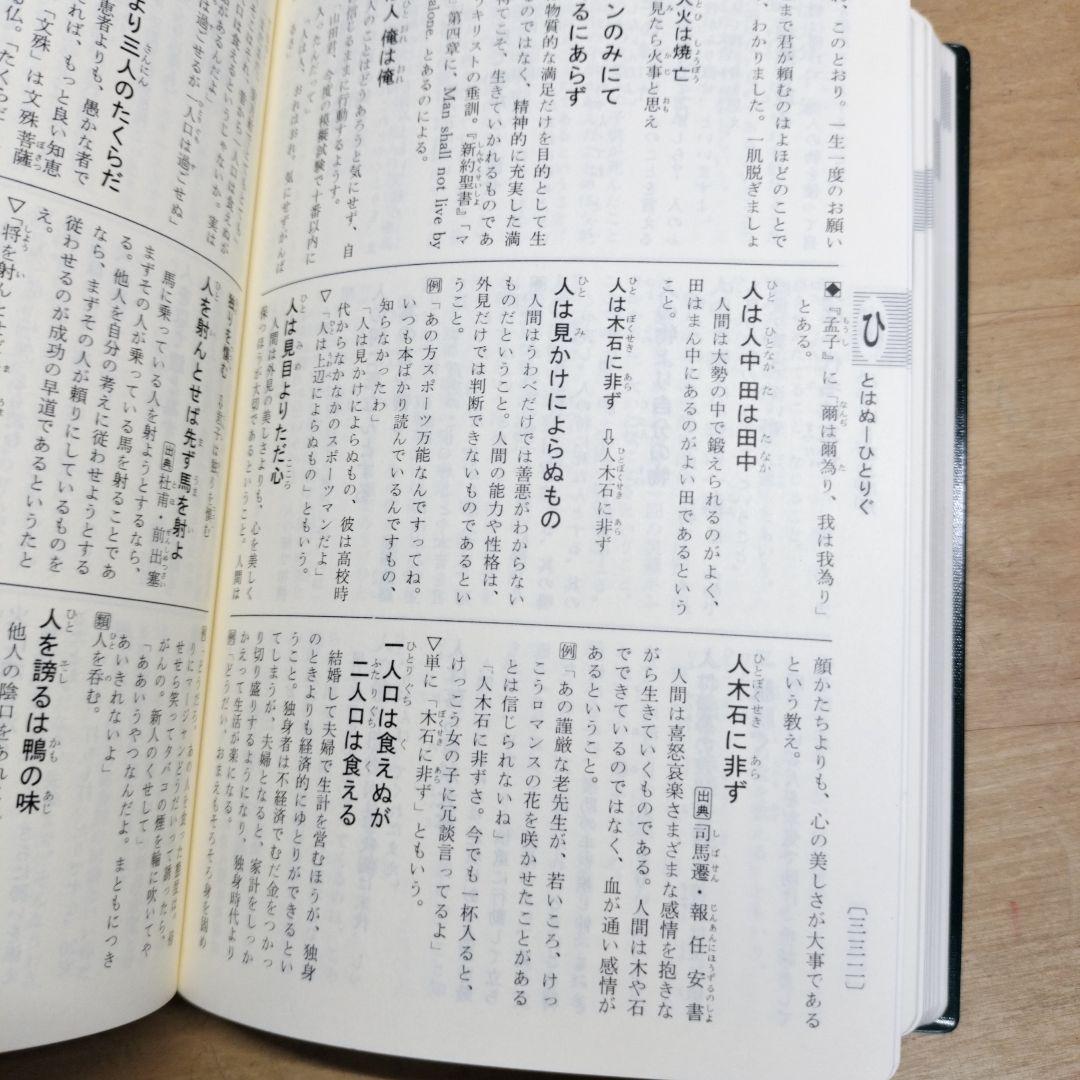 ひ
とはぬーひとりぐ
〔三三二〕
れ、このとおり。一生一度のお願い
まで君が頼むのはよほどのことで
、わかりました。一肌脱ぎましょ
火は焼亡
見たら火事と思え
ンのみにて
るにあらず
物質的な満足だけを目的として生
のではなく、精神的に充実した満
てこそ、生きていかれるものであ
キリストの垂訓。『新約聖書』「マ
第四章に、Man shall not live by
alone. とあるのによる。
人 俺は俺
人のことはどうあろうと気にせず、自
の信じるままに行動するようす。
「山田君、今度の模擬試験で十番以内に
◆『孟子』に「爾は爾為り、我は我為り」
とある。
人は人中 田は田中
人間は大勢の中で鍛えられるのがよく、
田はまん中にあるのがよい田であるという
こと。
人は木石に非ず ⇩人木石に非ず
人は見かけによらぬもの
人間はうわべだけでは善悪がわからない
ものだということ。人間の能力や性格は、
外見だけでは判断できないものであるとい
うこと。
例「あの方スポーツ万能なんですってね。
いつも本ばかり読んでいるんですもの、
知らなかったわ」
「人は見かけによらぬもの、彼は高校時
代からなかなかのスポーツマンだよ」
▽「人は上辺によらぬもの」ともいう。
人は見目よりただ心
人間は外見の美しさよりも、心を美しく
保つほうが大切であるということ。人間は
顔かたちよりも、心の美しさが大事である
という教え。
人木石に非ず
出典 司馬遷・報任安書
人間は喜怒哀楽さまざまな感情を抱きな
がら生きていくものである。人間は木や石
でできているのではなく、血が通い感情が
あるということ。
例「あの謹厳な老先生が、若いころ、けっ
こうロマンスの花を咲かせたことがある
とは信じられないね」
「人木石に非ずさ。今でも一杯入ると、
けっこう女の子に冗談言ってるよ」
▽単に「木石に非ず」ともいう。
一人口は食えぬが
二人口は食える
結婚して夫婦で生計を営むほうが、独身
のときよりも経済的にゆとりができるとい
うこと。独身者は不経済でむだ金をつかっ
てしまうが、夫婦となると、家計をしっか
り切り盛りするようになり、独身時代より
かえって生活が楽になる。
例「どうだい、おまえもそろそろ身を固め
人口は過ごせぬ」
より三人のたくらだ
患者よりも、愚かな者で
れば、もっと良い知恵
「文殊」は文殊菩薩
る仏。「たくらだ
人を射んとせば先ず馬を射よ
出典 杜甫・前出塞
馬に乗っている人を射ようとするなら、
まずその人が乗っている馬を射ることであ
る。他人を自分の考えに従わせようとする
なら、まずその人が頼りにしているものを
従わせるのが成功の早道であるというたと
え。
▽「将を射んとせば
せせら笑ってタバコの煙を輪に吹いてや
がんの。新人のくせして」
「ああいうやつなんだよ。まともにつき
あいきれないよ」
類 人を呑む。
人を謗るは鴨の味
他人の陰口をあれ